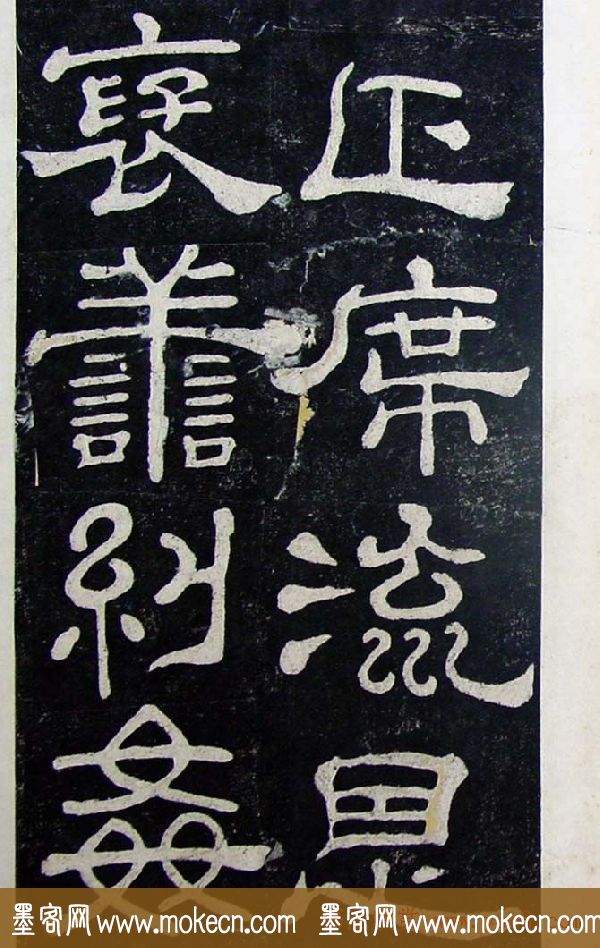 正席流恩
褒譱糾姦
墨客网 www.mokecn.com 墨客网 www.mokecn.com